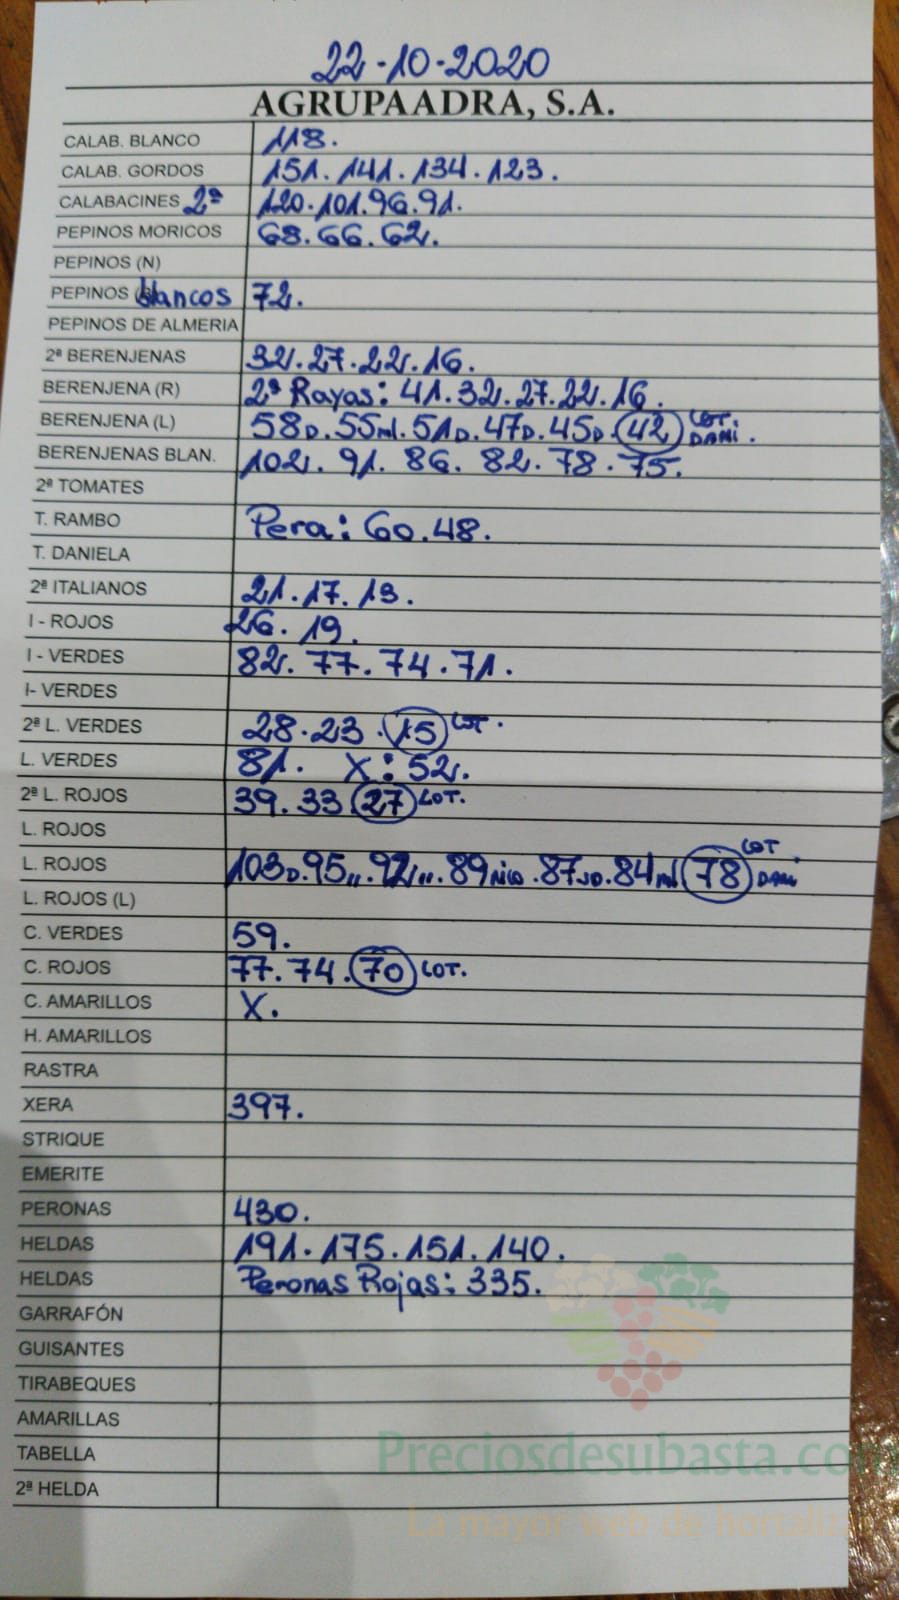 22-10-2020
AGRUPAADRA, S.A.
CALAB. BLANCO 118.
CALAB. GORDOS 151. 141. 134. 123.
CALABACINES 2ª 120. 101. 96. 91.
PEPINOS MORICOS 68. 66. 62.
PEPINOS (N)
PEPINOS blancos 72.
PEPINOS DE ALMERIA
2ª BERENJENAS 32. 27. 22. 16.
BERENJENA (R) 2ª Rayas: 41. 32. 27. 22. 16.
BERENJENA (L) 58D. 55ml. 51D. 47D. 45D. 42 LOT. DANI.
BERENJENAS BLAN. 102. 91. 86. 82. 78. 75.
2ª TOMATES
T. RAMBO Pera: 60. 48.
T. DANIELA
2ª ITALIANOS 21. 17. 13.
I - ROJOS 26. 19.
I - VERDES 82. 77. 74. 71.
I- VERDES
2ª L. VERDES 28. 23. 15 LOT.
L. VERDES 81. X: 52.
2ª L. ROJOS 39. 33. 27 LOT.
L. ROJOS
L. ROJOS 103D. 95,,. 92,,. 89 . 87 . 84 78 LOT DANI
L. ROJOS (L)
C. VERDES 59.
C. ROJOS 77. 74. 70 LOT.
C. AMARILLOS X.
H. AMARILLOS
RASTRA
XERA 397.
STRIQUE
EMERITE
PERONAS 430.
HELDAS 191. 175. 151. 140.
HELDAS Peronas Rojas: 335.
GARRAFÓN
GUISANTES
TIRABEQUES
AMARILLAS
TABELLA
2ª HELDA
Preciosdesubasta.com
La mayor web de hortaliz